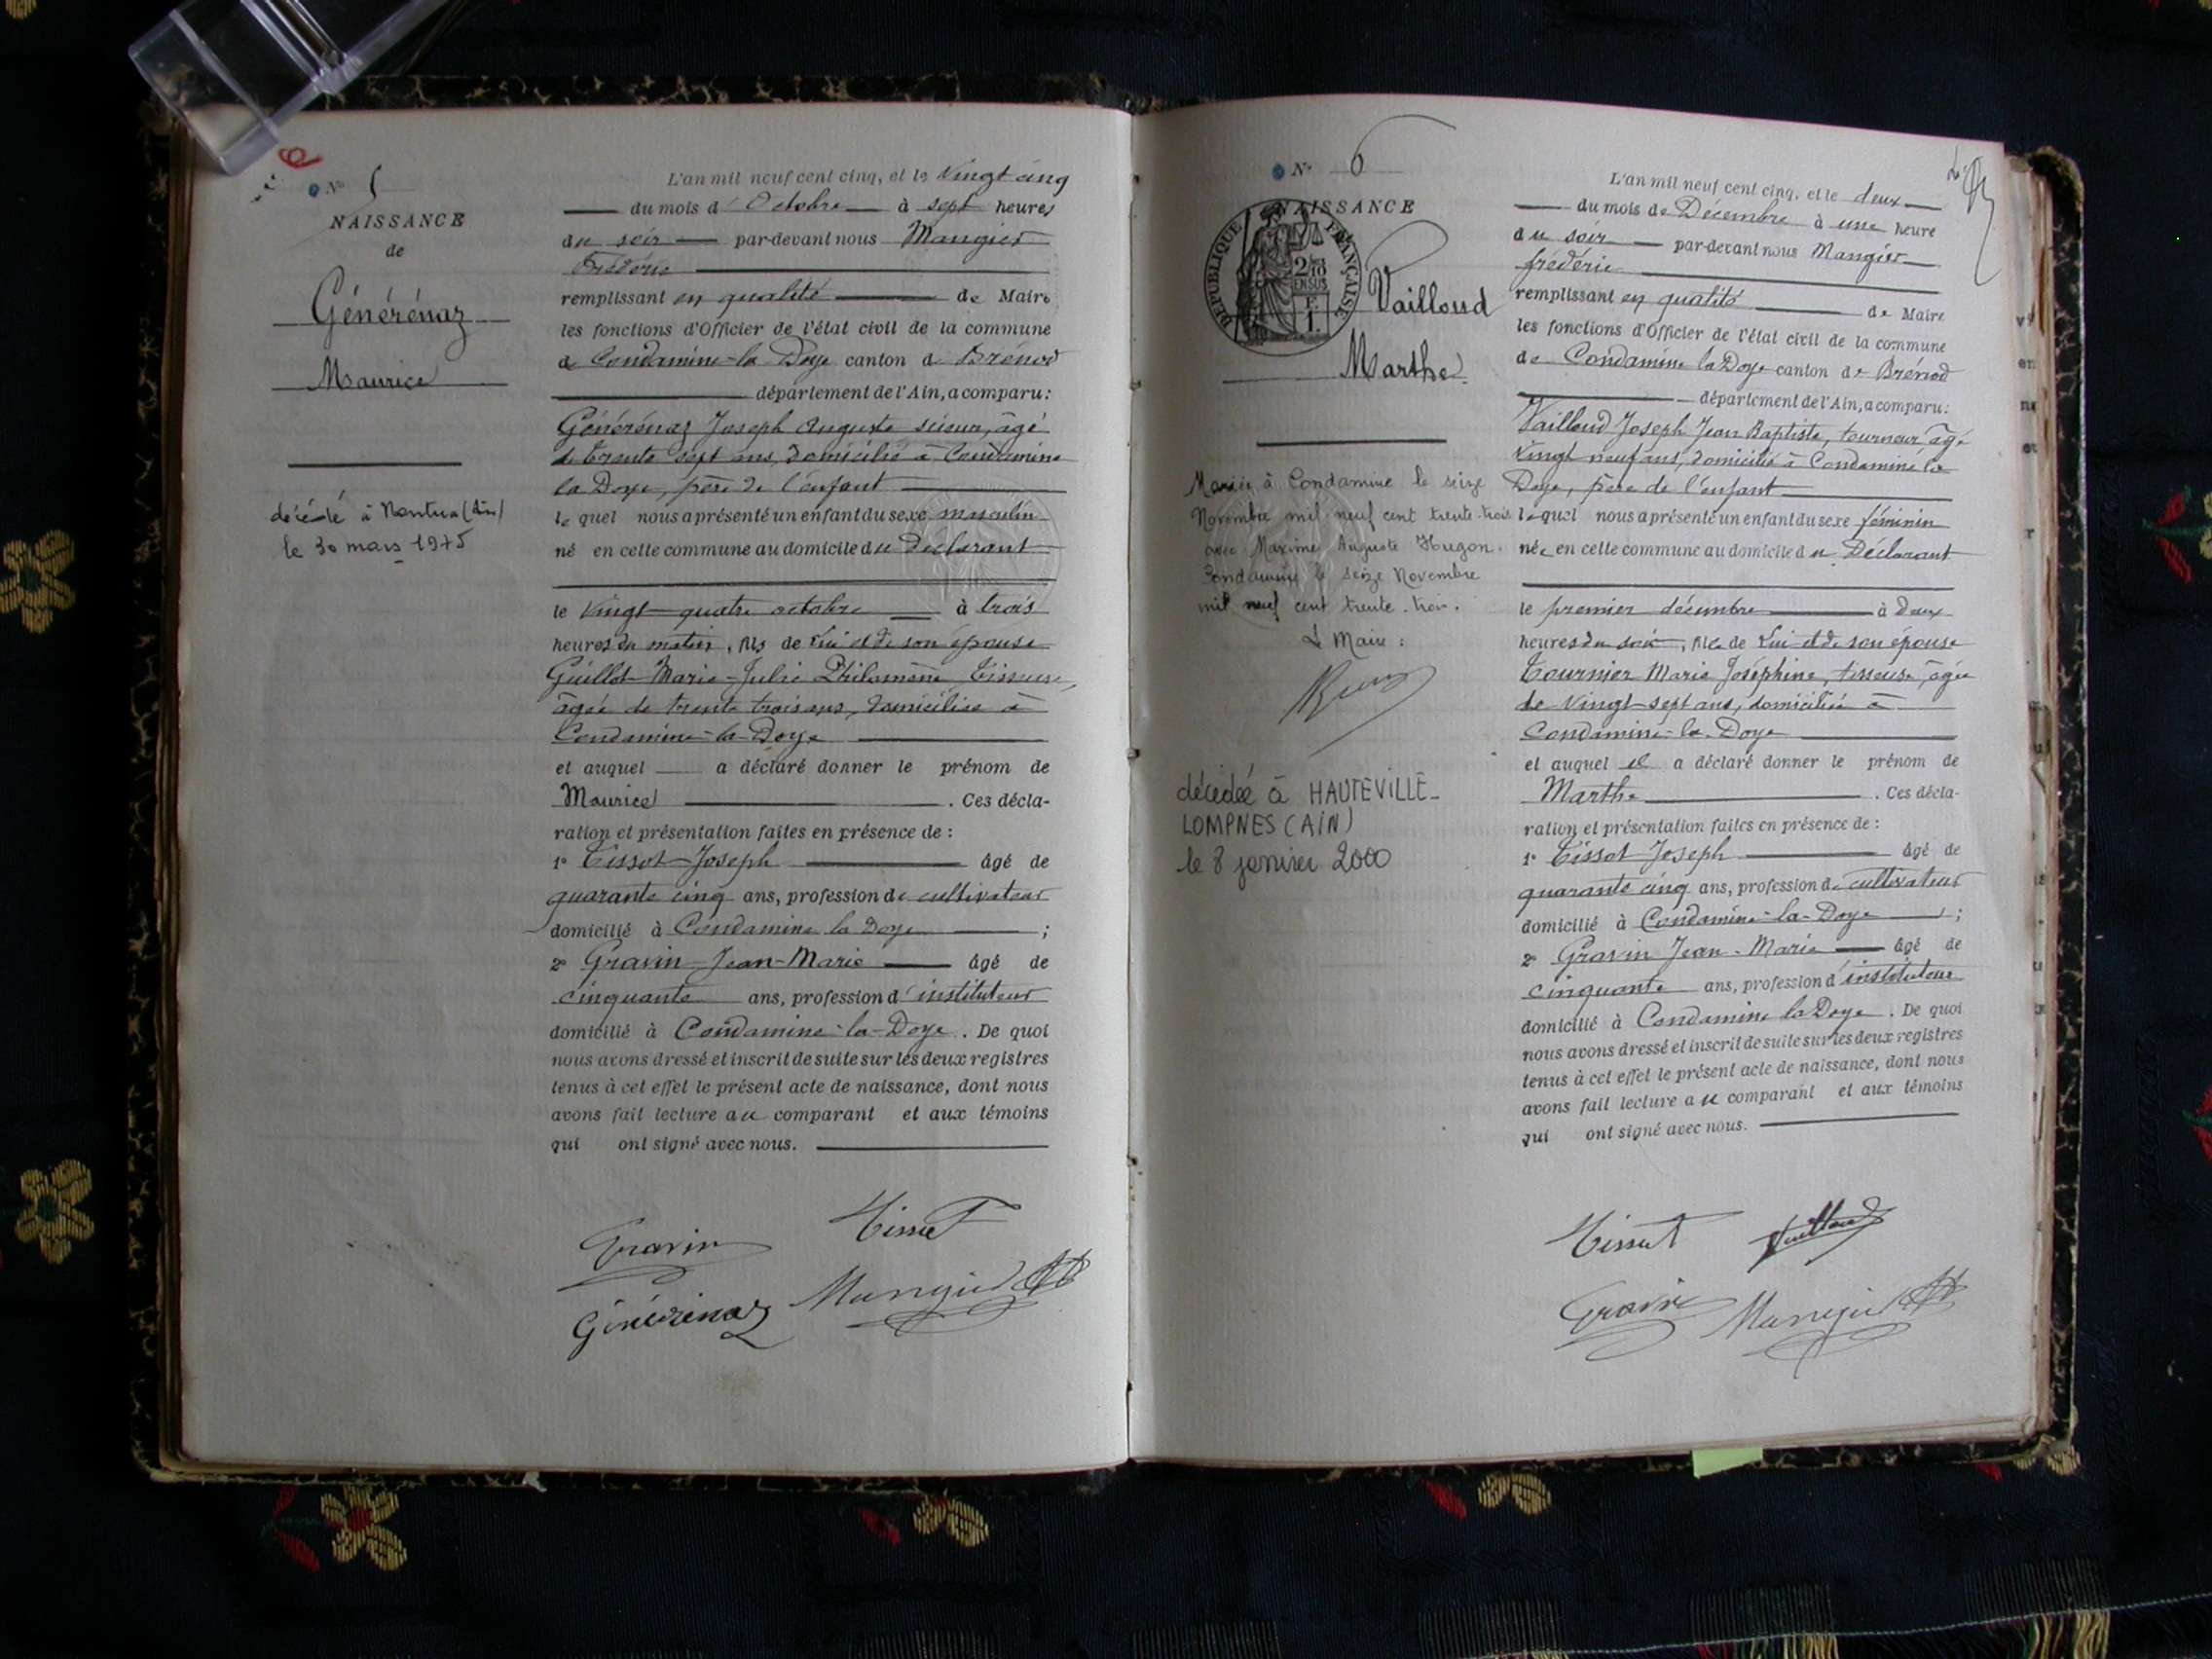 6
N° 5
NAISSANCE
de
Générénaz
Maurice
décédé à Nantua (Ain)
le 30 mars 1975
L'an mil neuf cent cinq, et le vingt cinq
du mois d'Octobre à sept heures
du soir par-devant nous Mangier
Frédéric
remplissant en qualité de Maire
les fonctions d'Officier de l'état civil de la commune
de Condamine-la-Doye canton de Brénod
département de l'Ain, a comparu:
Générénaz Joseph Auguste scieur, âgé
de trente sept ans, domicilié à Condamine
la Doye, père de l'enfant
lequel nous a présenté un enfant du sexe masculin
né en cette commune au domicile du Déclarant
le vingt-quatre octobre à trois
heures du matin, fils de Lui et de son épouse
Guillot Marie-Julie Philomène tisseuse,
âgée de trente trois ans, domiciliée à
Condamine-la-Doye
et auquel a déclaré donner le prénom de
Maurice . Ces décla-
ration et présentation faites en présence de :
1° Tissot Joseph âgé de
quarante cinq ans, profession de cultivateur
domicilié à Condamine la Doye ;
2° Gravin Jean-Marie âgé de
cinquante ans, profession d'instituteur
domicilié à Condamine-la-Doye . De quoi
nous avons dressé et inscrit de suite sur les deux registres
tenus à cet effet le présent acte de naissance, dont nous
avons fait lecture au comparant et aux témoins
qui ont signé avec nous.
Gravin Tissot
Générénaz Mangier
N° 6
NAISSANCE
REPUBLIQUE FRANÇAISE
2/10 EN SUS
Vailloud
Marthe
Mariée à Condamine le seize
Novembre mil neuf cent trente-trois
avec Maxime Auguste Hugon.
Condamine le seize Novembre
mil neuf cent trente-trois.
Le Maire :
décédée à HAUTEVILLE-
LOMPNES (AIN)
le 8 janvier 2000
L'an mil neuf cent cinq, et le deux
du mois de Décembre à une heure
du soir par-devant nous Mangier
frédéric
remplissant en qualité de Maire
les fonctions d'Officier de l'état civil de la commune
de Condamine la Doye canton de Brénod
département de l'Ain, a comparu:
Vailloud Joseph Jean Baptiste, tourneur âgé
vingt neuf ans, domicilié à Condamine la
Doye, père de l'enfant
lequel nous a présenté un enfant du sexe féminin
née en cette commune au domicile du Déclarant
le premier décembre à deux
heures du soir, fille de Lui et de son épouse
Tournier Marie Joséphine, tisseuse, âgée
de vingt-sept ans, domiciliée à
Condamine-la-Doye
et auquel il a déclaré donner le prénom de
Marthe . Ces décla-
ration et présentation faites en présence de :
1° Tissot Joseph âgé de
quarante cinq ans, profession de cultivateur
domicilié à Condamine-la-Doye ;
2° Gravin Jean-Marie âgé de
cinquante ans, profession d'instituteur
domicilié à Condamine la Doye . De quoi
nous avons dressé et inscrit de suite sur les deux registres
tenus à cet effet le présent acte de naissance, dont nous
avons fait lecture au comparant et aux témoins
qui ont signé avec nous.
Tissot Vailloud
Gravin Mangier